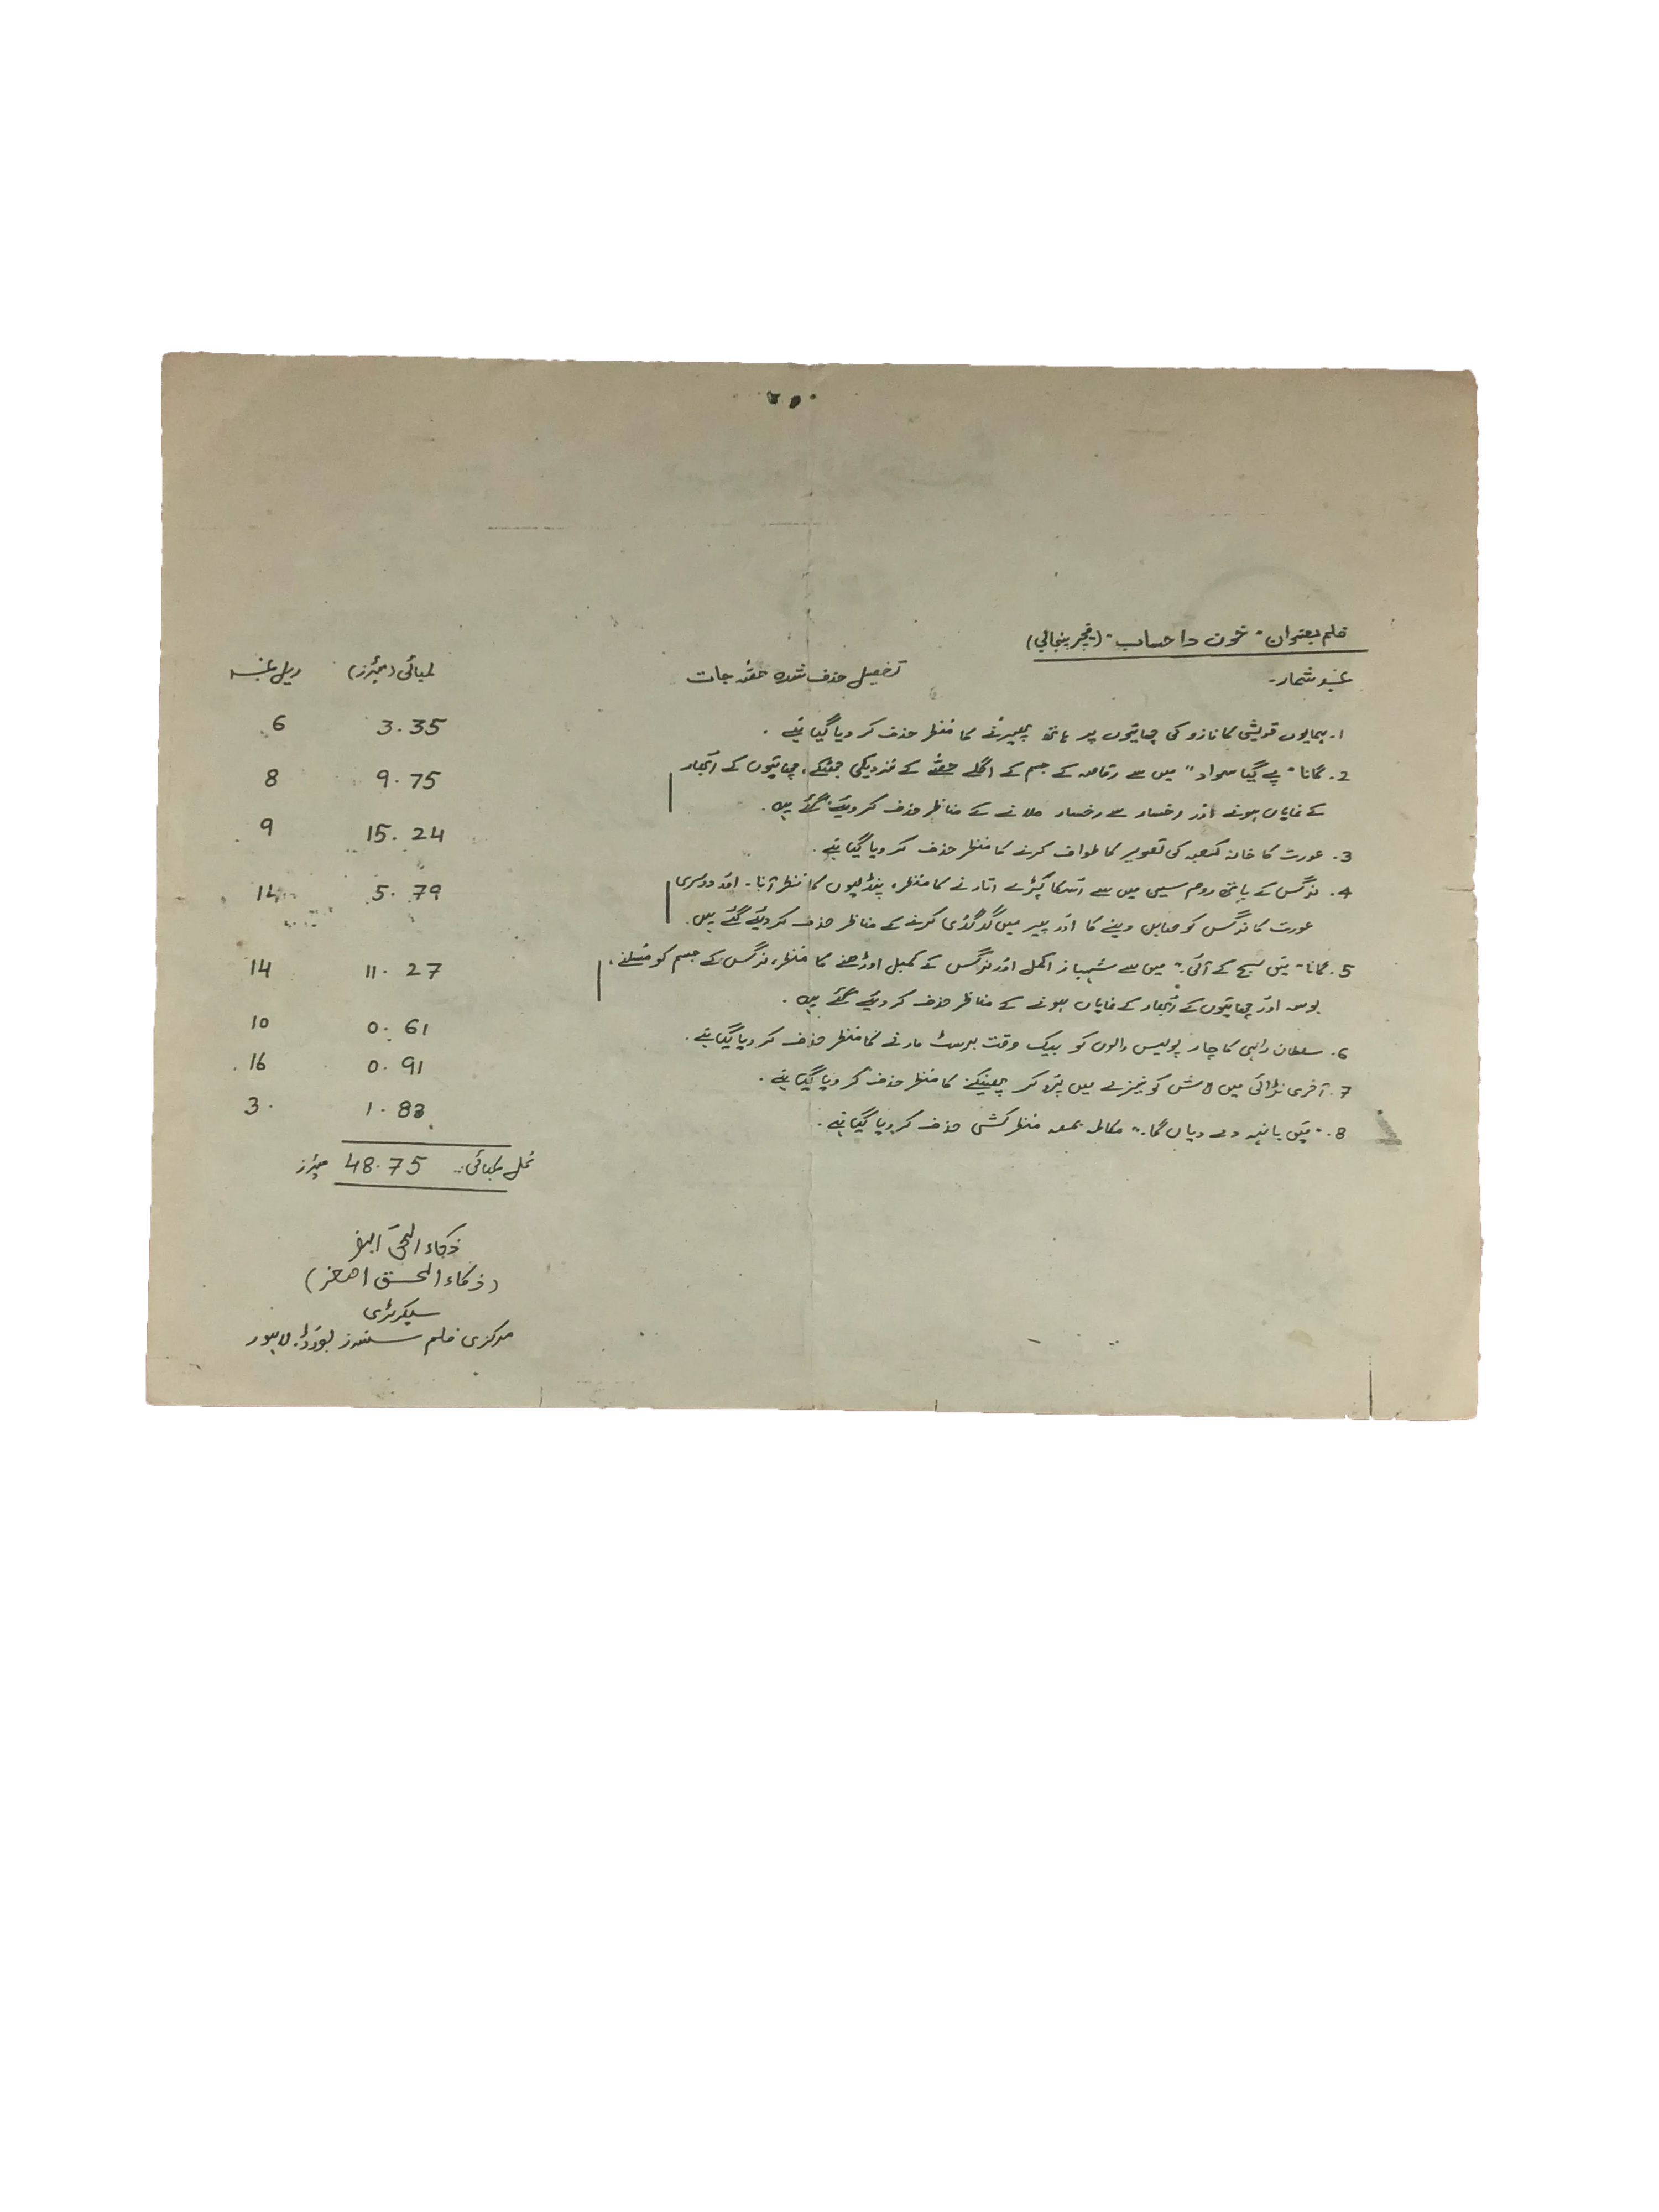 فلم بعنوان "خون دا حساب" (فیچر پنجابی)
نمبر شمار۔ تفصیل حذف شدہ حصہ جات لمبائی (میٹرز) ریل نمبر
1۔ ہمایوں قریشی کا نازو کی چھاتیوں پر ہاتھ پھیرنے کا منظر حذف کر دیا گیا ہے۔ 3.35 6
2۔ گانا "پے گیا سواد" میں سے رقاصہ کے جسم کے اگلے حصّے کے نزدیکی جھٹکے، چھاتیوں کے اُبھار 9.75 8
کے نمایاں ہونے اور رخسار سے رخسار ملانے کے مناظر حذف کر دیئے گئے ہیں۔
3۔ عورت کا خانہ کعبہ کی تصویر کا طواف کرنے کا منظر حذف کر دیا گیا ہے۔ 15.24 9
4۔ نرگس کے باتھ روم سین میں سے اُسکا کپڑے اتارنے کا منظر، پنڈلیوں کا نظر آنا۔ اور دوسری 5.79 14
عورت کا نرگس کو صابن دینے کا اور پیر میں گدگدی کرنے کے مناظر حذف کر دیئے گئے ہیں۔
5۔ گانا "میں سج کے آئی" میں سے شہباز اکمل اور نرگس کے کمبل اوڑھنے کا منظر، نرگس کے جسم کو مَسلنے، 11.27 14
بوسہ اور چھاتیوں کے اُبھار کے نمایاں ہونے کے مناظر حذف کر دیئے گئے ہیں۔
6۔ سلطان راہی کا چار پولیس والوں کو بیک وقت برسٹ مارنے کا منظر حذف کر دیا گیا ہے۔ 0.61 10
7۔ آخری لڑائی میں لاش کو نیزے میں پرو کر پھینکنے کا منظر حذف کر دیا گیا ہے۔ 0.91 16
8۔ "میں بانہہ دے دیاں گا۔" مکالمہ بمعہ منظر کشی حذف کر دیا گیا ہے۔ 1.83 3
کُل لمبائی:۔ 48.75 میٹرز
ذکاء الحق اصغر
(ذکاء الحسق اصغر)
سیکرٹری
مرکزی فلم سنسرز بورڈ، لاہور